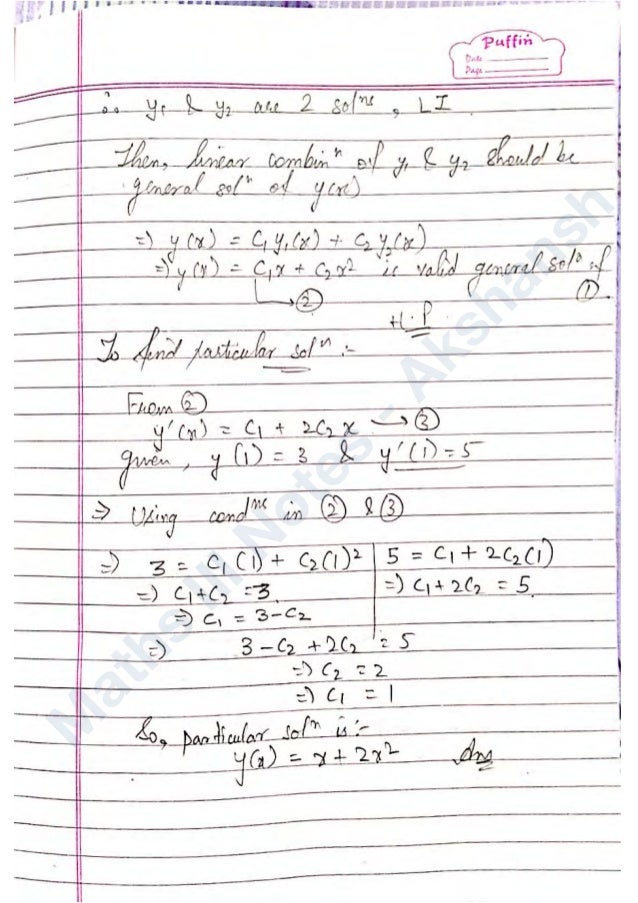 Puffin
Date
Page
∴ y₁ & y₂ are 2 solⁿˢ, LI
Then, linear combinⁿ of y₁ & y₂ should be
general solⁿ of y(x)
⇒ y(x) = C₁y₁(x) + C₂y₂(x)
⇒ y(x) = C₁x + C₂x² is valid general solⁿ of ①.
→ ②
H.P
To find particular solⁿ :-
From ②
y'(x) = C₁ + 2C₂x → ③
given, y(1) = 3 & y'(1) = 5
⇒ Using condⁿˢ in ② & ③
⇒ 3 = C₁(1) + C₂(1)² | 5 = C₁ + 2C₂(1)
⇒ C₁+C₂ = 3 | ⇒ C₁+2C₂ = 5.
⇒ C₁ = 3-C₂
⇒ 3-C₂+2C₂ = 5
⇒ C₂ = 2
⇒ C₁ = 1
So, particular solⁿ is :-
y(x) = x + 2x² Ans
Maths III Notes - Akshansh